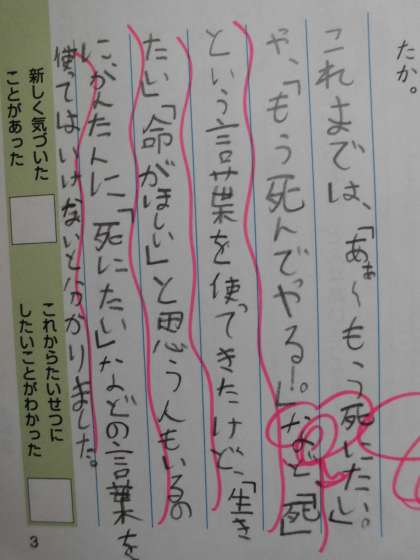 たか。
これまでは、「あぁ〜もう死にたい。」
や、「もう死んでやる!。」など、「死」
という言葉を使ってきたけど、「生き
たい」「命がほしい」と思う人もいるの
に、かんたんに、「死にたい」などの言葉を
使ってはいけないと分かりました。
新しく気づいた
ことがあった
これからたいせつに
したいことがわかった
3